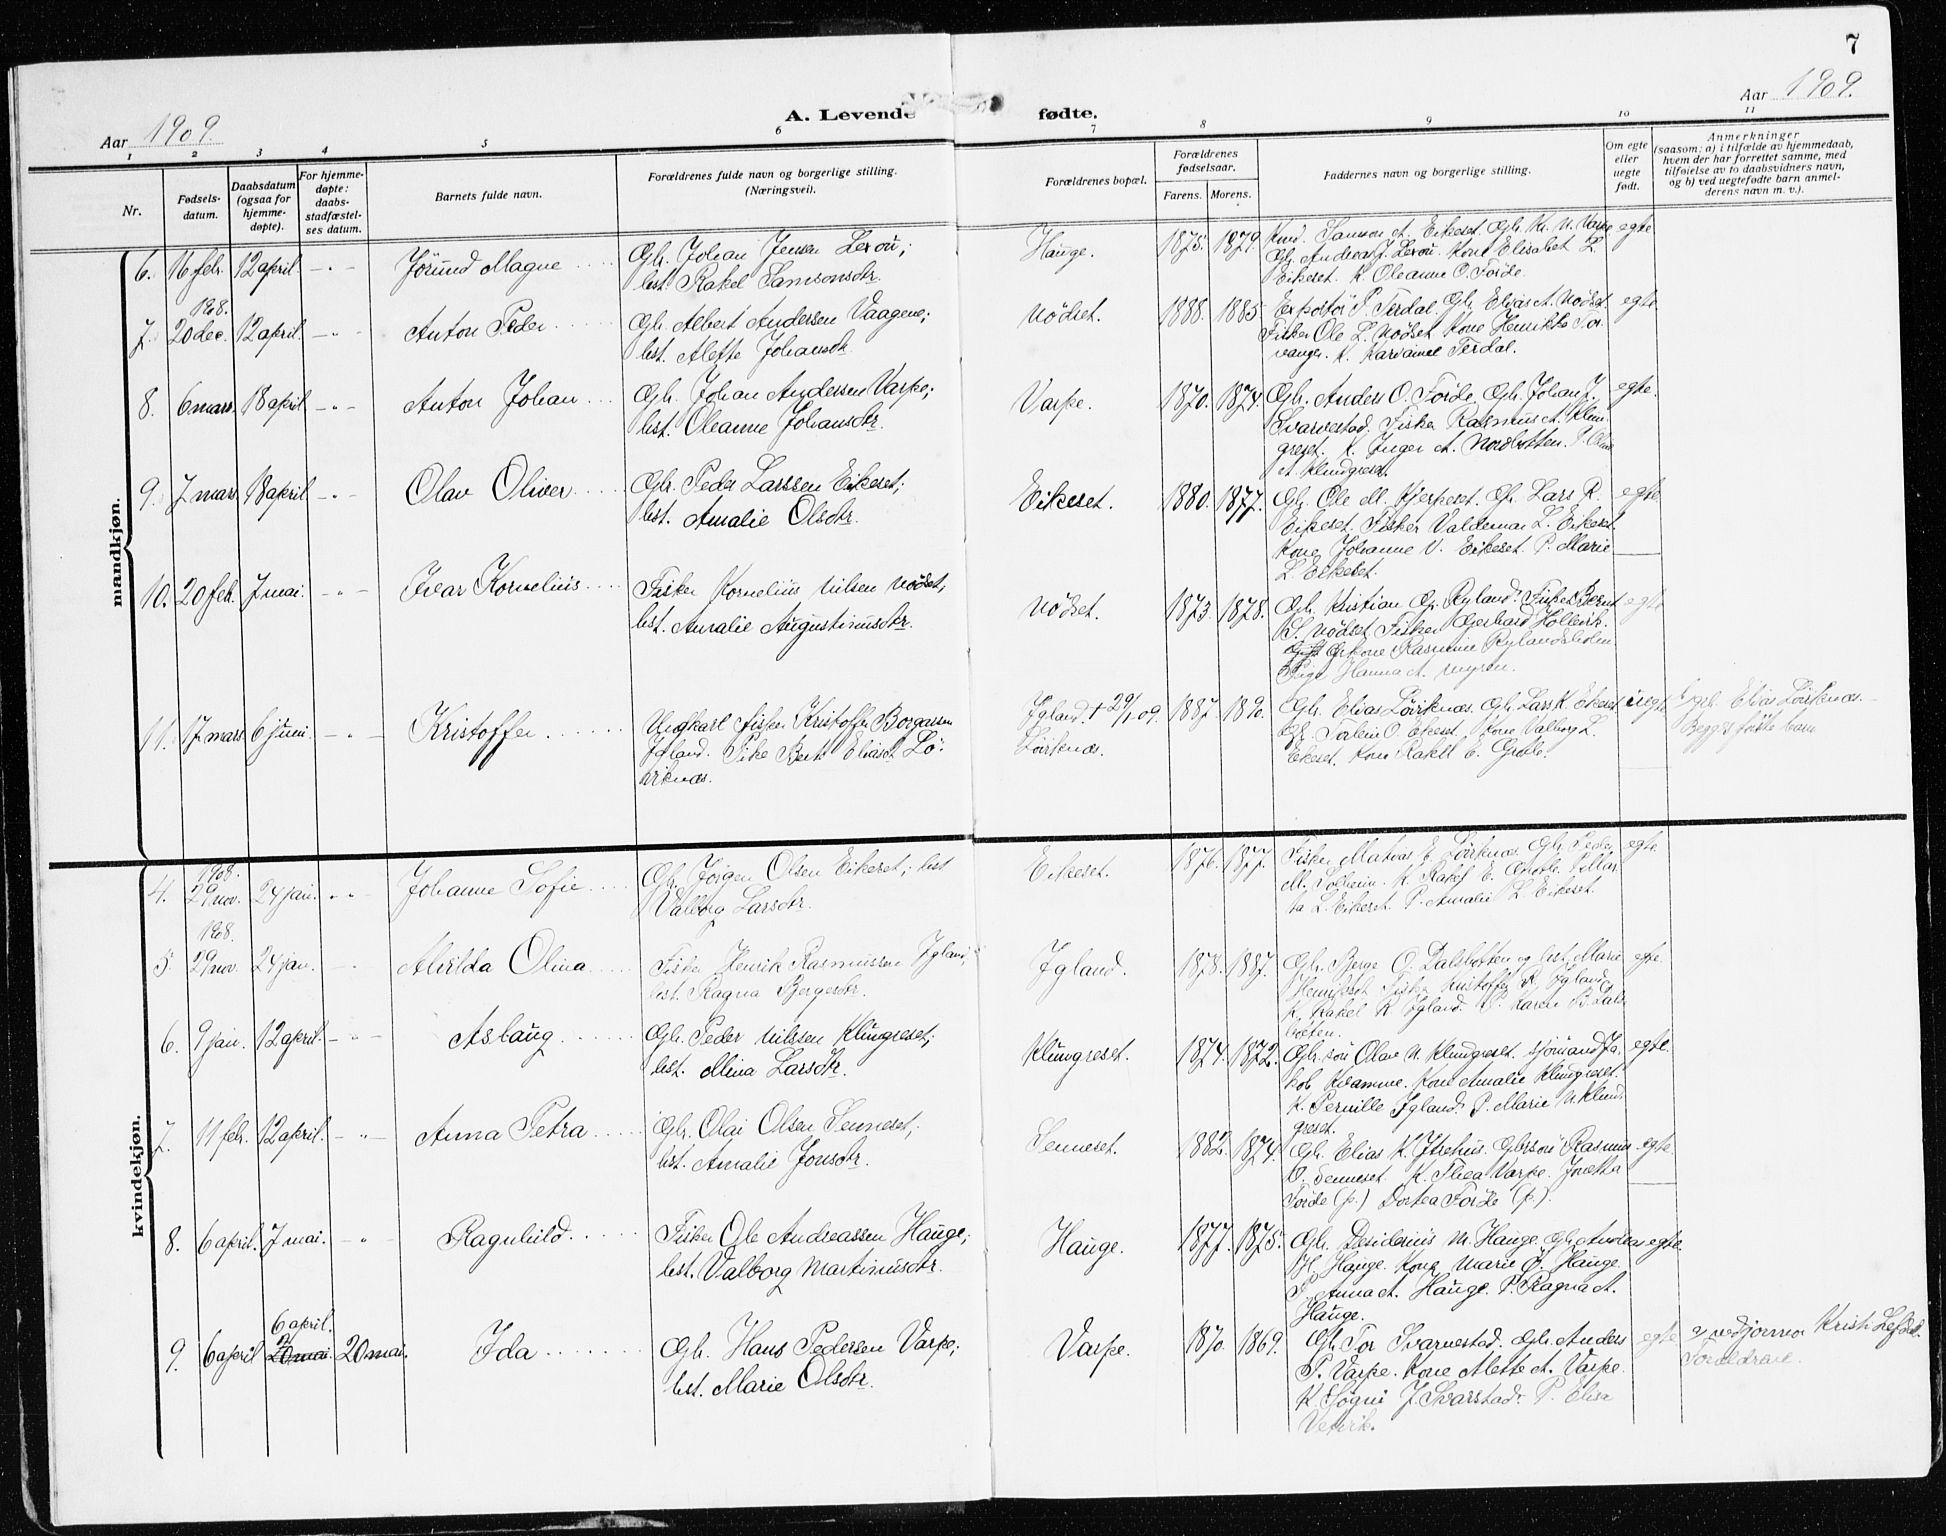 7
Aar 1909.
A. Levende fødte.
Aar 1909.
1 2 3 4 5 6 7 8 9 10 11
Nr.
Fødsels-
datum.
Daabsdatum
(ogsaa for
hjemme-
døpte).
For hjemme-
døpte:
daabs-
stadfæstel-
ses datum.
Barnets fulde navn.
Forældrenes fulde navn og borgerlige stilling.
(Næringsvei).
Forældrenes bopæl.
Forældrenes
fødselsaar.
Farens. Morens.
Faddernes navn og borgerlige stilling.
Om egte
eller
uegte
født.
Anmerkninger
(saasom: a) i tilfælde av hjemmedaab,
hvem der har forrettet samme, med
tilføielse av to daabsvidners navn,
og b) ved uegtefødte barn anmel-
derens navn m. v.).
mandkjøn.
6. 16 febr. 12 april. - " - Jörund Magne
Gbr. Johan Jensen Leröi;
hst. Rakel Samsonsdtr.
Hauge. 1875. 1879.
Samson A. Eikeset. Gbr. K. N. Varpe
Gbr. Andreas J. Leröi. Kone Elisabet L.
Eikeset. K. Oleanne O. Förde.
egte
1908.
7. 20 dec. 12 april. - " - Anton Peder
Gbr. Albert Andersen Vaagene;
hst. Alette Johansdtr.
Nödset. 1888. 1885.
P. Terdal. Gbr. Elias A. Nödset.
Fisker Ole L. Nödset. Kone Henrikke Tor-
vanger. K. Terdal.
egte.
8. 6 mars. 18 april - " - Anton Johan
Gbr. Johan Andersen Varpe;
hst. Oleanne Johansdtr.
Varpe. 1870. 1874.
Gbr. Anders O. Förde. Gbr. Johan J.
Svarvestad. Fisker Rasmus A. Klun-
greset. K. Inger A. Nordbotten. P. Oline
A. Klungreset.
egte.
9. 7 mars 18 april - " - Olav Oliver
Gbr. Peder Larssen Eikeset;
hst. Amalie Olsdtr.
Eikeset. 1880. 1877.
Gbr. Ole M. Hjerpeset. Gbr. Lars R.
Eikeset. Fisker Valdemar L. Eikeset.
Kone Johanne V. Eikeset. P. Marie
L. Eikeset.
egte
10. 20 feb. 7 mai. - " - Ivar Kornelius
Fisker Kornelius Nilsen Nödset;
hst. Amalie Augustinusdtr.
Nödset. 1873. 1878.
Gbr. Kristian Gj. Ryland. Fisker Bernt
L. Nödset. Fisker Gerhard Hollevik.
Gbrkone Rasmine Rylandsholm.
Pige Hanna A. Myren.
egte
11. 17 mars 6 juni - " - Kristoffer
Ungkarl fisker Kristoffer Borgarssen
Igland. Pike Berte Eliasdt. Lö-
viknæs.
Igland. + 29/1 09.
Löviknæs.
1887 1890.
Gbr. Elias Löviknæs. Gbr. Lars K. Eikeset
Gbr. Torleiv O. Eikeset. Kone Valborg L.
Eikeset. Kone Rakel E. Grotle.
uegte
Elias Löviknæs.
Begges første barn
kvindekjøn.
1908.
4. 29 nov. 24 jan. " " Johanne Sofie
Gbr. Jörgen Olsen Eikeset; hst
Valborg Larsdtr.
Eikeset. 1876. 1877.
Fisker Matias E. Löviknæs. Gbr. Peder
M. Solheim. K. Rakel E. Grotle. P. Mar-
ta L. Eikeset. P. Amalie L. Eikeset.
egte
1908.
5. 29 nov. 24 jan. - " - Alvilda Olina
Fisker Henrik Rasmussen Igland;
hst. Ragna Bergesdtr.
Igland. 1878. 1887.
Gbr. Berge O. Dalsbotten og hst. Marie
Henriksdt. Fisker Kristoffer R. Igland.
K. Rakel K. Igland. P. Karen B. Dals-
botten.
egte.
6. 9 jan. 12 april. - " - Aslaug
Gbr. Peder Nilssen Klungreset;
hst. Mina Larsdtr.
Klungreset. 1874. 1872.
Gbr. sön Olav N. Klungreset. Sjömand Ja-
kob Kvamme. Kone Amalie Klungreset.
K. Pernille Igland. P. Marie N. Klun-
greset.
egte.
7. 11 febr. 12 april. - " - Anna Petra
Gbr. Olai Olsen Senneset;
hst. Amalie Jonsdtr.
Senneset. 1882. 1874.
Gbr. Elias K. Ytrehus. Gbrsön Rasmus
O. Senneset. K. Thea Varpe. Jonetta
Förde (p.) Dortea Förde (p.).
egte.
8. 6 april. 7 mai. - " - Ragnhild
Fisker Ole Andreassen Hauge;
hst. Valborg Martinusdtr.
Hauge. 1877. 1875.
Gbr. Desiderius M. Hauge. Gbr. Andreas
H. Hauge. Kone Marie Ö. Hauge.
P. Anna A. Hauge. P. Ragna A.
Hauge.
egte.
6 april.
9. 6 april 20 mai 20 mai. Ida
Gbr. Hans Pedersen Varpe;
hst. Marie Olsdtr.
Varpe. 1870. 1869.
Gbr. Tor Svarvestad. Gbr. Anders
P. Varpe. Kone Alette A. Varpe.
K. Sögni J. Svarstad. P. Elisa
Vetvik.
egte
av jordmor Kristi Lefdal.
Foreldrene.